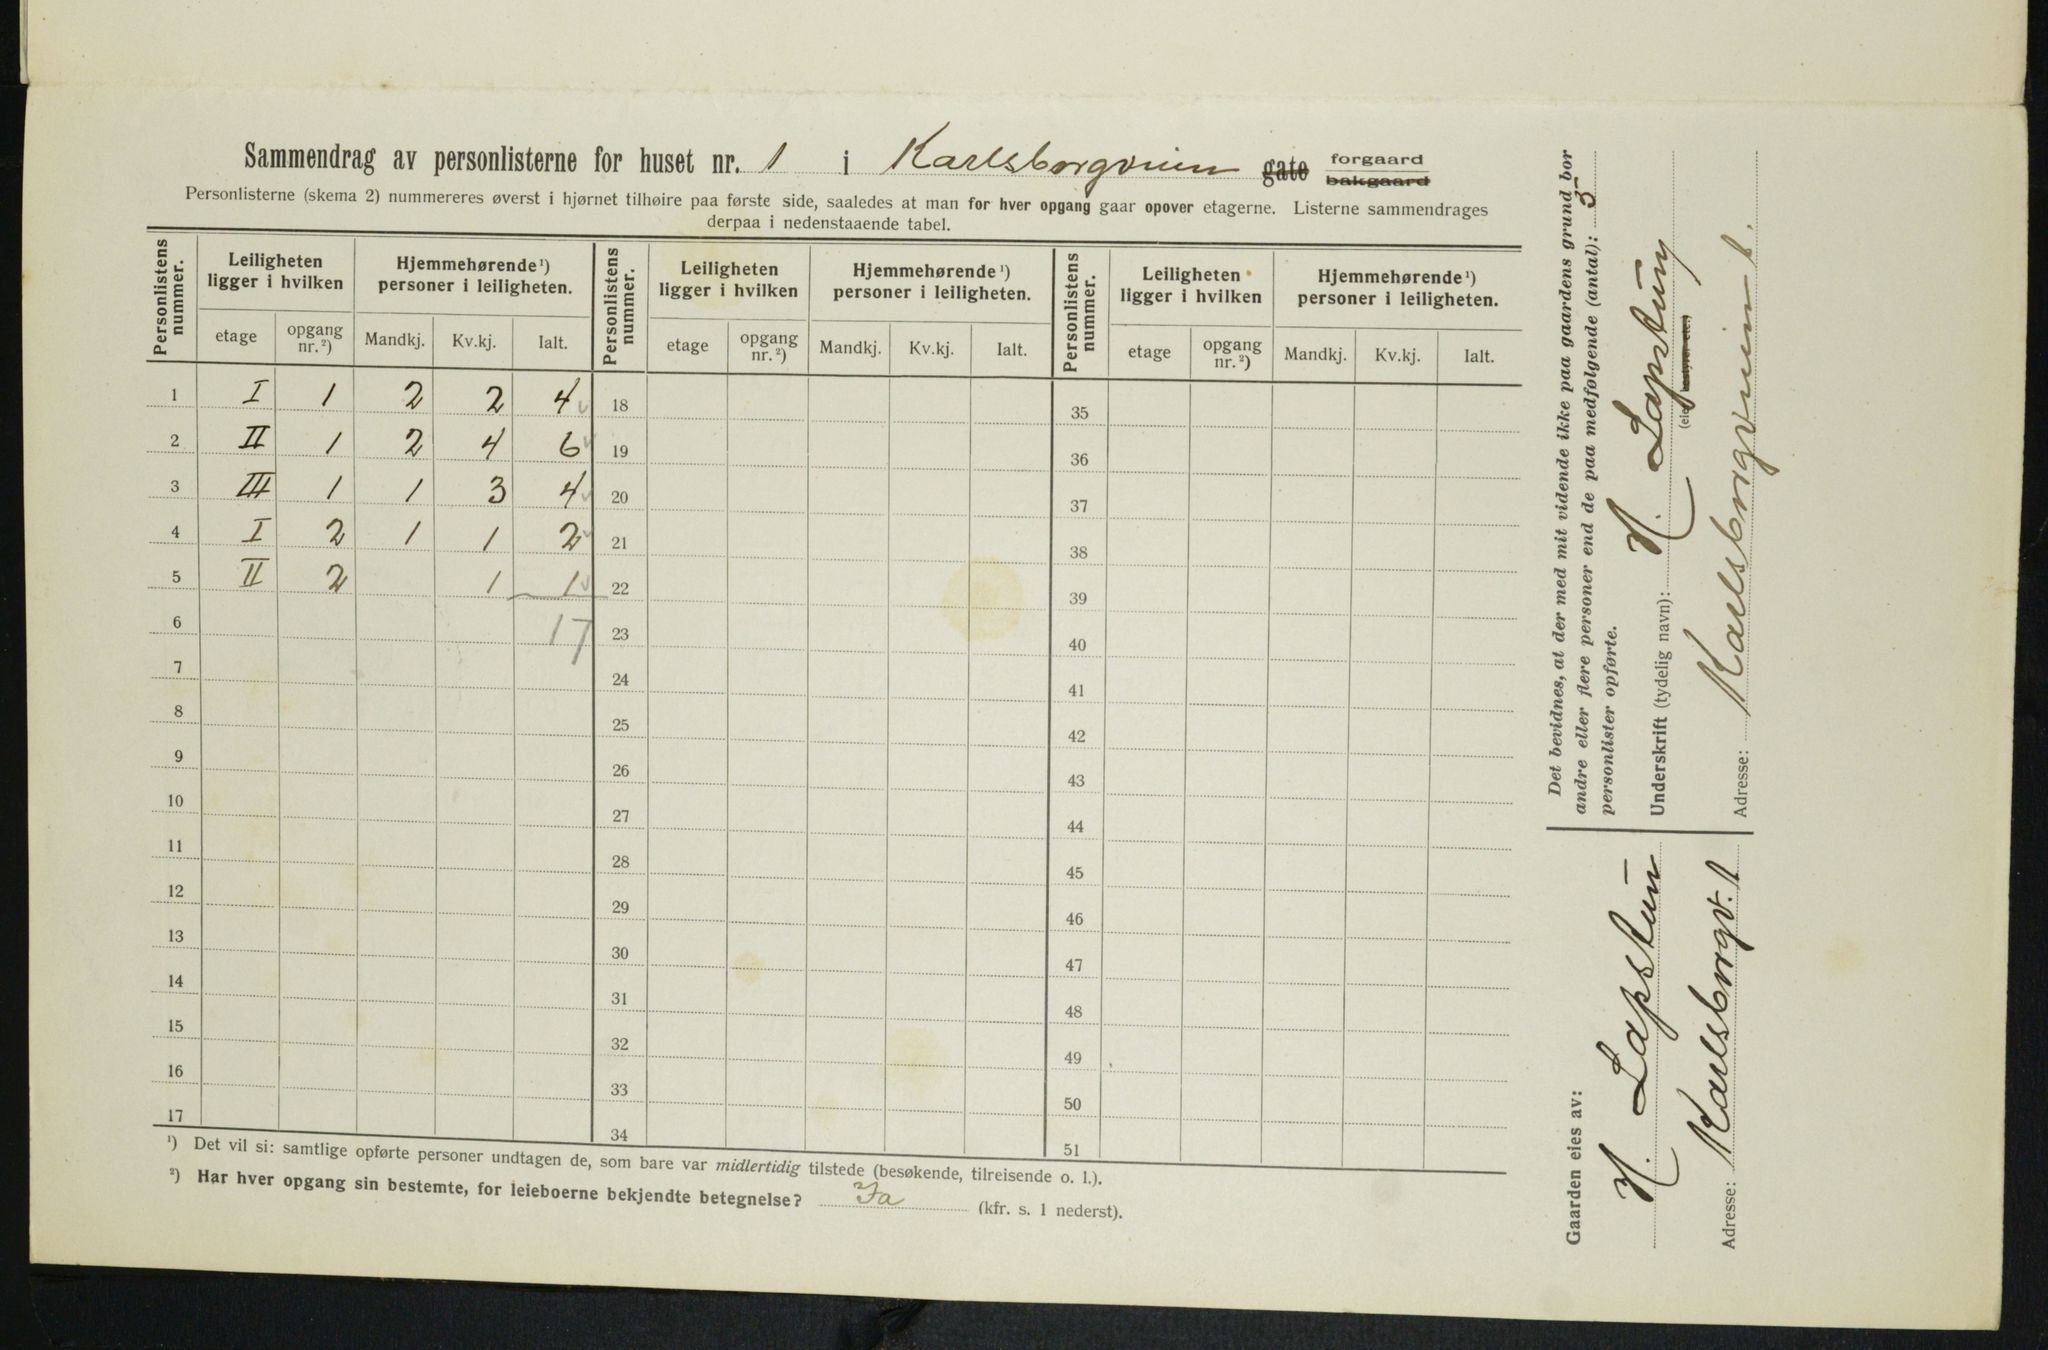 Sammendrag av personlisterne for huset nr. 1 i Karlsborgveien gate forgaard bakgaard
Personlisterne (skema 2) nummereres øverst i hjørnet tilhøire paa første side, saaledes at man for hver opgang gaar opover etagerne. Listerne sammendrages
derpaa i nedenstaaende tabel.
Personlistens nummer. Leiligheten ligger i hvilken Hjemmehørende¹) personer i leiligheten. Personlistens nummer. Leiligheten ligger i hvilken Hjemmehørende¹) personer i leiligheten. Personlistens nummer. Leiligheten ligger i hvilken Hjemmehørende¹) personer i leiligheten.
etage opgang nr.²) Mandkj. Kv.kj. Ialt. etage opgang nr.²) Mandkj. Kv.kj. Ialt. etage opgang nr.²) Mandkj. Kv.kj. Ialt.
1 I 1 2 2 4 18 35
2 II 1 2 4 6 19 36
3 III 1 1 3 4 20 37
4 I 2 1 1 2 21 38
5 II 2 1 1 22 39
6 17 23 40
7 24 41
8 25 42
9 26 43
10 27 44
11 28 45
12 29 46
13 30 47
14 31 48
15 32 49
16 33 50
17 34 51
¹) Det vil si: samtlige opførte personer undtagen de, som bare var midlertidig tilstede (besøkende, tilreisende o. l.).
²) Har hver opgang sin bestemte, for leieboerne bekjendte betegnelse? Ja (kfr. s. 1 nederst).
Det bevidnes, at der med mit vidende ikke paa gaardens grund bor
andre eller flere personer end de paa medfølgende (antal): 5
personlister opførte.
Underskrift (tydelig navn): N. Lapstun
Adresse: Karlsborgveien 1.
Gaarden eies av:
N. Lapstun
Adresse: Karlsborgv. 1